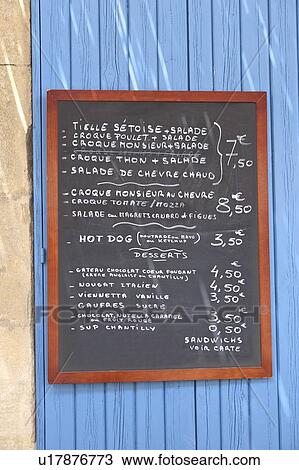 - TIELLE SÉTOISE + SALADE
- CROQUE POULET + SALADE
- CROQUE MONSIEUR + SALADE
- CROQUE THON + SALADE
- SALADE DE CHEVRE CHAUD
7,50 €
- CROQUE MONSIEUR AU CHEVRE
- CROQUE TOMATE / MOZZA
- SALADE AUX MAGRETS CANARD & FIGUES
8,50 €
- HOT DOG (MOUTARDE OU MAYO OU KETCHUP 3,50 €
DESSERTS
- GATEAU CHOCOLAT COEUR FONDANT 4,50 €
(CREME ANGLAISE OU CHANTILLY)
- NOUGAT ITALIEN 4,50 €
- VIENNETTA VANILLE 3,50 €
- GAUFRES SUCRE
- CHOCOLAT, NUTELLA CARAMEL 3,50 €
OU FRUIT ROUGE
- SUP CHANTILLY 0,50 €
SANDWICHS
VOIR CARTE
FOTOSEARCH
u17876773 www.fotosearch.com